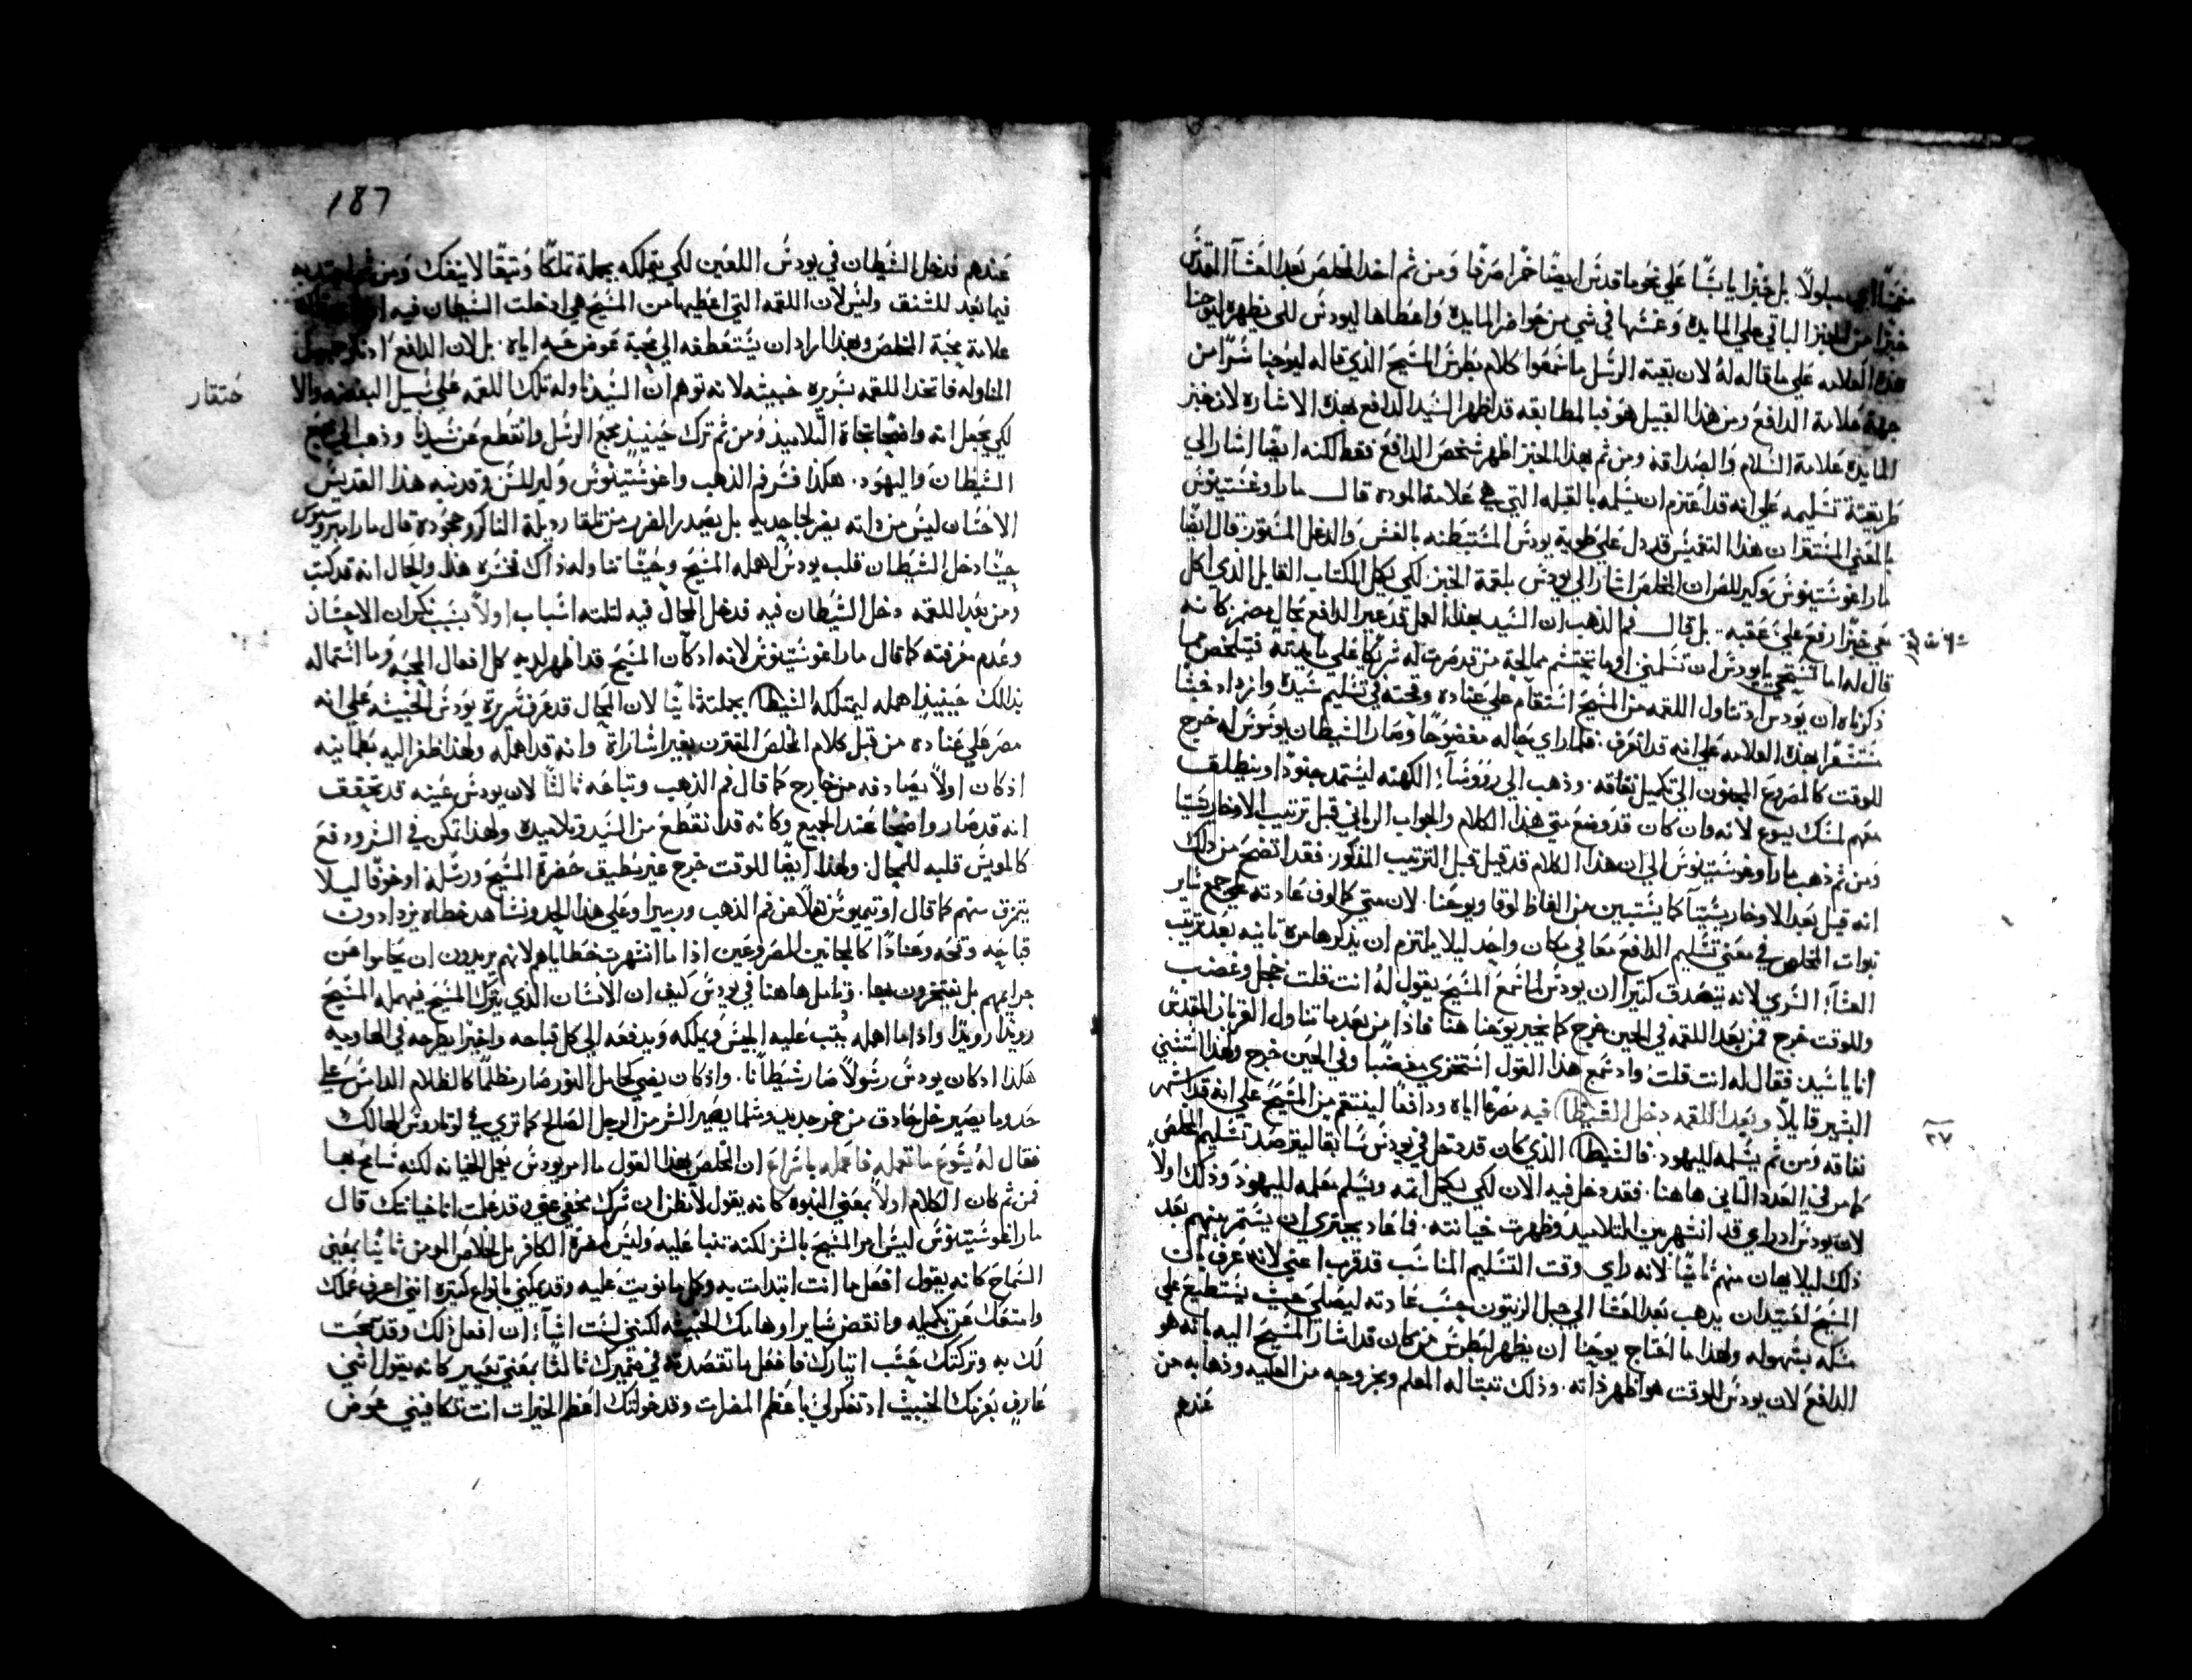 خبزًا يابسًا علي نحو ما قدس ايضًا خمرا صرفا ومن ثم اخد المخلص بعد العشآ المقدس
خبزًا من الخبز الباقي علي المايده وغمسها في شي من حواضر المايده واعطاها ليودس لكي يظهر ليوحنا
هذه العلامه علي ما قاله له لان بقية الرسل ما سمعوا كلام بطرس المسيح الذي قاله ليوحنا سرًا من
جهة علامة الدافع ومن هذا القبيل هو فبالمطابقه قد اظهر السيد الدافع بهذه الاشاره لان خبز
المايده علامة السلام والصداقه ومن ثم بهذا الخبز اظهر شخص الدافع فقط لكنه ايضًا اشار الي
طريقة تسليمه علي انه قد اعتزم ان يسلمه بالقبله التي هي علامة الموده قال ماراوغستينوس
بالمعني المستتر ان هذا التغميس قد دل علي طوية يودس المستبطنه بالغش والدغل المستور قال ايضًا
ماراغوستينوس وكيرللس ان المخلص اشار الي يودس بلقمة الخبز لكي يكمل الكتاب القايل الذي اكل
معي خبزًا رفع علي عقبه. بل قال فم الذهب ان السيد بهذا العمل قد عير الدافع بحال مضمر كانه
قال له اما تستحي يايودس ان تسلمني اوما تحتشم ممالحة من قد صرت له شريكا علي مايدته فيتلخص مما
ذكرناه ان يودس اد تناول اللقمه من المسيح استقام علي عناده وقحته في تسليم سيده وازداد خبثا
مستشعرا بهذه العلامه علي انه قد انعرف. فلما راي حاله مفضوحًا وصار الشيطان يوسوس له خرج
للوقت كالمصروع المجنون الي تكميل نفاقه. وذهب الي رووسآء الكهنه ليستمد جنودًا وينطلق
معهم لمسك يسوع لانه وان كان قد وضع متي هذا الكلام والجواب الرباني قبل ترتيب الاوخارستيا
ومن ثم ذهب ماراوغوستينوس الي ان هذا الكلام قد قيل قبل الترتيب المذكور. فقد اتضح من ذلك
انه قيل بعد الاوخاريستيآ كما يستبين من الفاظ لوقا ويوحنا. لان متي كمالوف عادته جمع ساير
نبوات المخلص في معني تسليم الدافع معا في مكان واحد ليلا يلتزم ان يذكرها مرة تانيه بعد ترتيب
العشآء السري لانه يتصدق كتيرا ان يودس لما سمع المسيح يقول له انت قلت خجل وغضب
وللوقت خرج فمن بعد اللقمه في الحين خرج كما يخبر يوحنا هنا فاذا من بعد ما تناول القربان المقدس
انا ياسيد فقال له انت قلت واد سمع هذا القول استخزي مغضبًا وفي الحين خرج ولهذا استثني
البشير قايلاً وبعد اللقمه دخل الشيطان فيه مصرعا اياه ودافعًا لينتقم من المسيح علي انه قد اشهر
نفاقه ومن ثم يسلمه لليهود. فالشيطان الذي كان قد دخل في يودس سابقا ليقرصد تسليم المخلص
كما مر في العدد التاني هاهنا. فقد دخل فيه الان لكي يكمل اتمه ويسلم معلمه لليهود وذلك اولاً
لان يودس اد راي قد انشهر بين التلاميد وظهرت خيانته. فما عاد يجتري ان يستمر بينهم بعد
ذلك ليلا يهان منهم تانيًا لانه راي وقت التسليم المناسب قد قرب اعني لانه عرف بان
المسيح لعتيد ان يدهب بعد العشا الي جبل الزيتون حسب عادته ليصلي حيث يستطيع علي
مسكه بسهوله ولهذا ما احتاج يوحنا ان يظهر لبطرس من كان قد اشار المسيح اليه بانه هو
الدافع لان يودس للوقت هو اظهر ذاته. وذلك نبتا له المعلم وبخروجه من العليه وذهابه من
عندهم
٢٧
187
عندهم فدخل الشيطان في يودس اللعين لكي يتملكه بجملة تملكًا وتيقًا لا ينفك ومن ثم
فيما بعد للشنق وليس لان اللقمه التي اعطيها من المسيح هي ادخلت الشيطان فيه
علامة محبة المخلص وبهذا اراد ان يستعطفه الي محبة عوض حبه اياه. بل لان الدافع
المناوله فاتخد اللقمه بسريره خبيثه لانه توهم ان السيد ناوله تلك اللقمه علي سبيل البغضه والا
حتقار
لكي يجعل انه واضحًا تجاة التلاميذ ومن ثم ترك حينيذٍ مجمع الرسل وانقطع عن سيدنا وذهب الي مجمع
الشيطان واليهود. هكذا فسر فم الذهب واغوستينوس وكيرللس وقد نبه هذا القديس
الاحسان ليس من داته يضر لجاحديه بل يصدر الضرر من تلقا رديلة الناكر وجحوده قال مار امبروسيوس
حينًا دخل الشيطان قلب يودس اهمله المسيح وحينًا تناوله ذاك خسره هذا والحال انه قد كتب
ومن بعد اللقمه دخل الشيطان فيه قد دخل المحال فيه لتلته اسباب اولاً بسبب نكران الاحسان
وعدم معرفته كما قال ماراغوستينوس لانه اد كان المسيح قد اظهر لديه كل افعال المحبه وما استماله
بذالك حينيذٍ اهمله ليتملكه الشيطان بجملته تانيًا لان المحال قد عرف سريرة يودس الخبيثه علي انه
مصر علي عناده من قبل كلام المخلص المقترن بغير اشارات وانه قد اهمله ولهذا ظفر اليه بطمانينه
اذ كان اولاً يصادفه من خارج كما قال فم الذهب وتباعه تالتًا لان يودس عينه قد تحقق
انه قد صار واضحًا عند الجميع وكانه قد انقطع من السيد وتلاميده ولهذا تمكن في الشر ودفع
كالمويس قلبه للمحال. ولهذا ايضًا للوقت خرج غير مطيق حضرة المسيح ورسله او خوفًا ليلا
يتمزق منهم كما قال اوتيميوس نقلاً عن فم الذهب وريبيرا وعلي هذا الحدو نشاهد خطاه يزدادون
قباحه وقحه وعنادًا كالمجانين المصروعين اذا ما انشهرت خطاياهم لانهم يريدون ان يحاموا عن
جرايمهم بل يفتخرون بها. وتامل هاهنا في يودس كيف ان الانسان الذي يترك المسيح فيهمله المسيح
رويدًا رويدًا واذا ما اهمله يثب عليه ابليس ويملكه ويدفعه الي كل قباحه واخيرًا يطرحه في الهاويه
هكذا اد كان يودس رسولاً صار شيطانًا. واذ كان يضي كحامل النور صار مظلمًا كالظلام الدامس علي
حدوما يصير خل حادق من خمر جديد ومتلما يصير الشر من الرجل الصالح كما تري في لوتاروس الهالك
فقال له يسوع ما تعمله فاعمله باسراع ان المخلص بهذا القول ما امر يودس بعمل الخيانه لكنه سامح بها
فمن ثم كان الكلام اولاً بمعني النبوه كانه يقول لا تظن ان شرك مخفي عني وقد علمت انا خيانتك قال
ماراغوستينوس ليس امر المسيح بالشر لكنه تنبا عليه وليس لمضرة الكافر بل لخلاص المومن تانيًا بمعني
السماح كانه يقول افعل ما انت ابتدات به وكل ما نويت عليه وقد يمكنني بانواع كتيره انني اعرف عملك
وامنعك عن تكميله وانقض ساير اوهامك الخبيثه لكنني لست اشآء ان افعل ذلك وقد سمحت
لك به وتركتك حسب اختيارك فافعل ما تقصده في ضميرك تالتًا بمعني تعيير كانه يقول انني
عارف بعزمك الخبيث اد تفكر لي باعظم المضرات وقد خولتك اعظم الخيرات انت تكافيني عوض